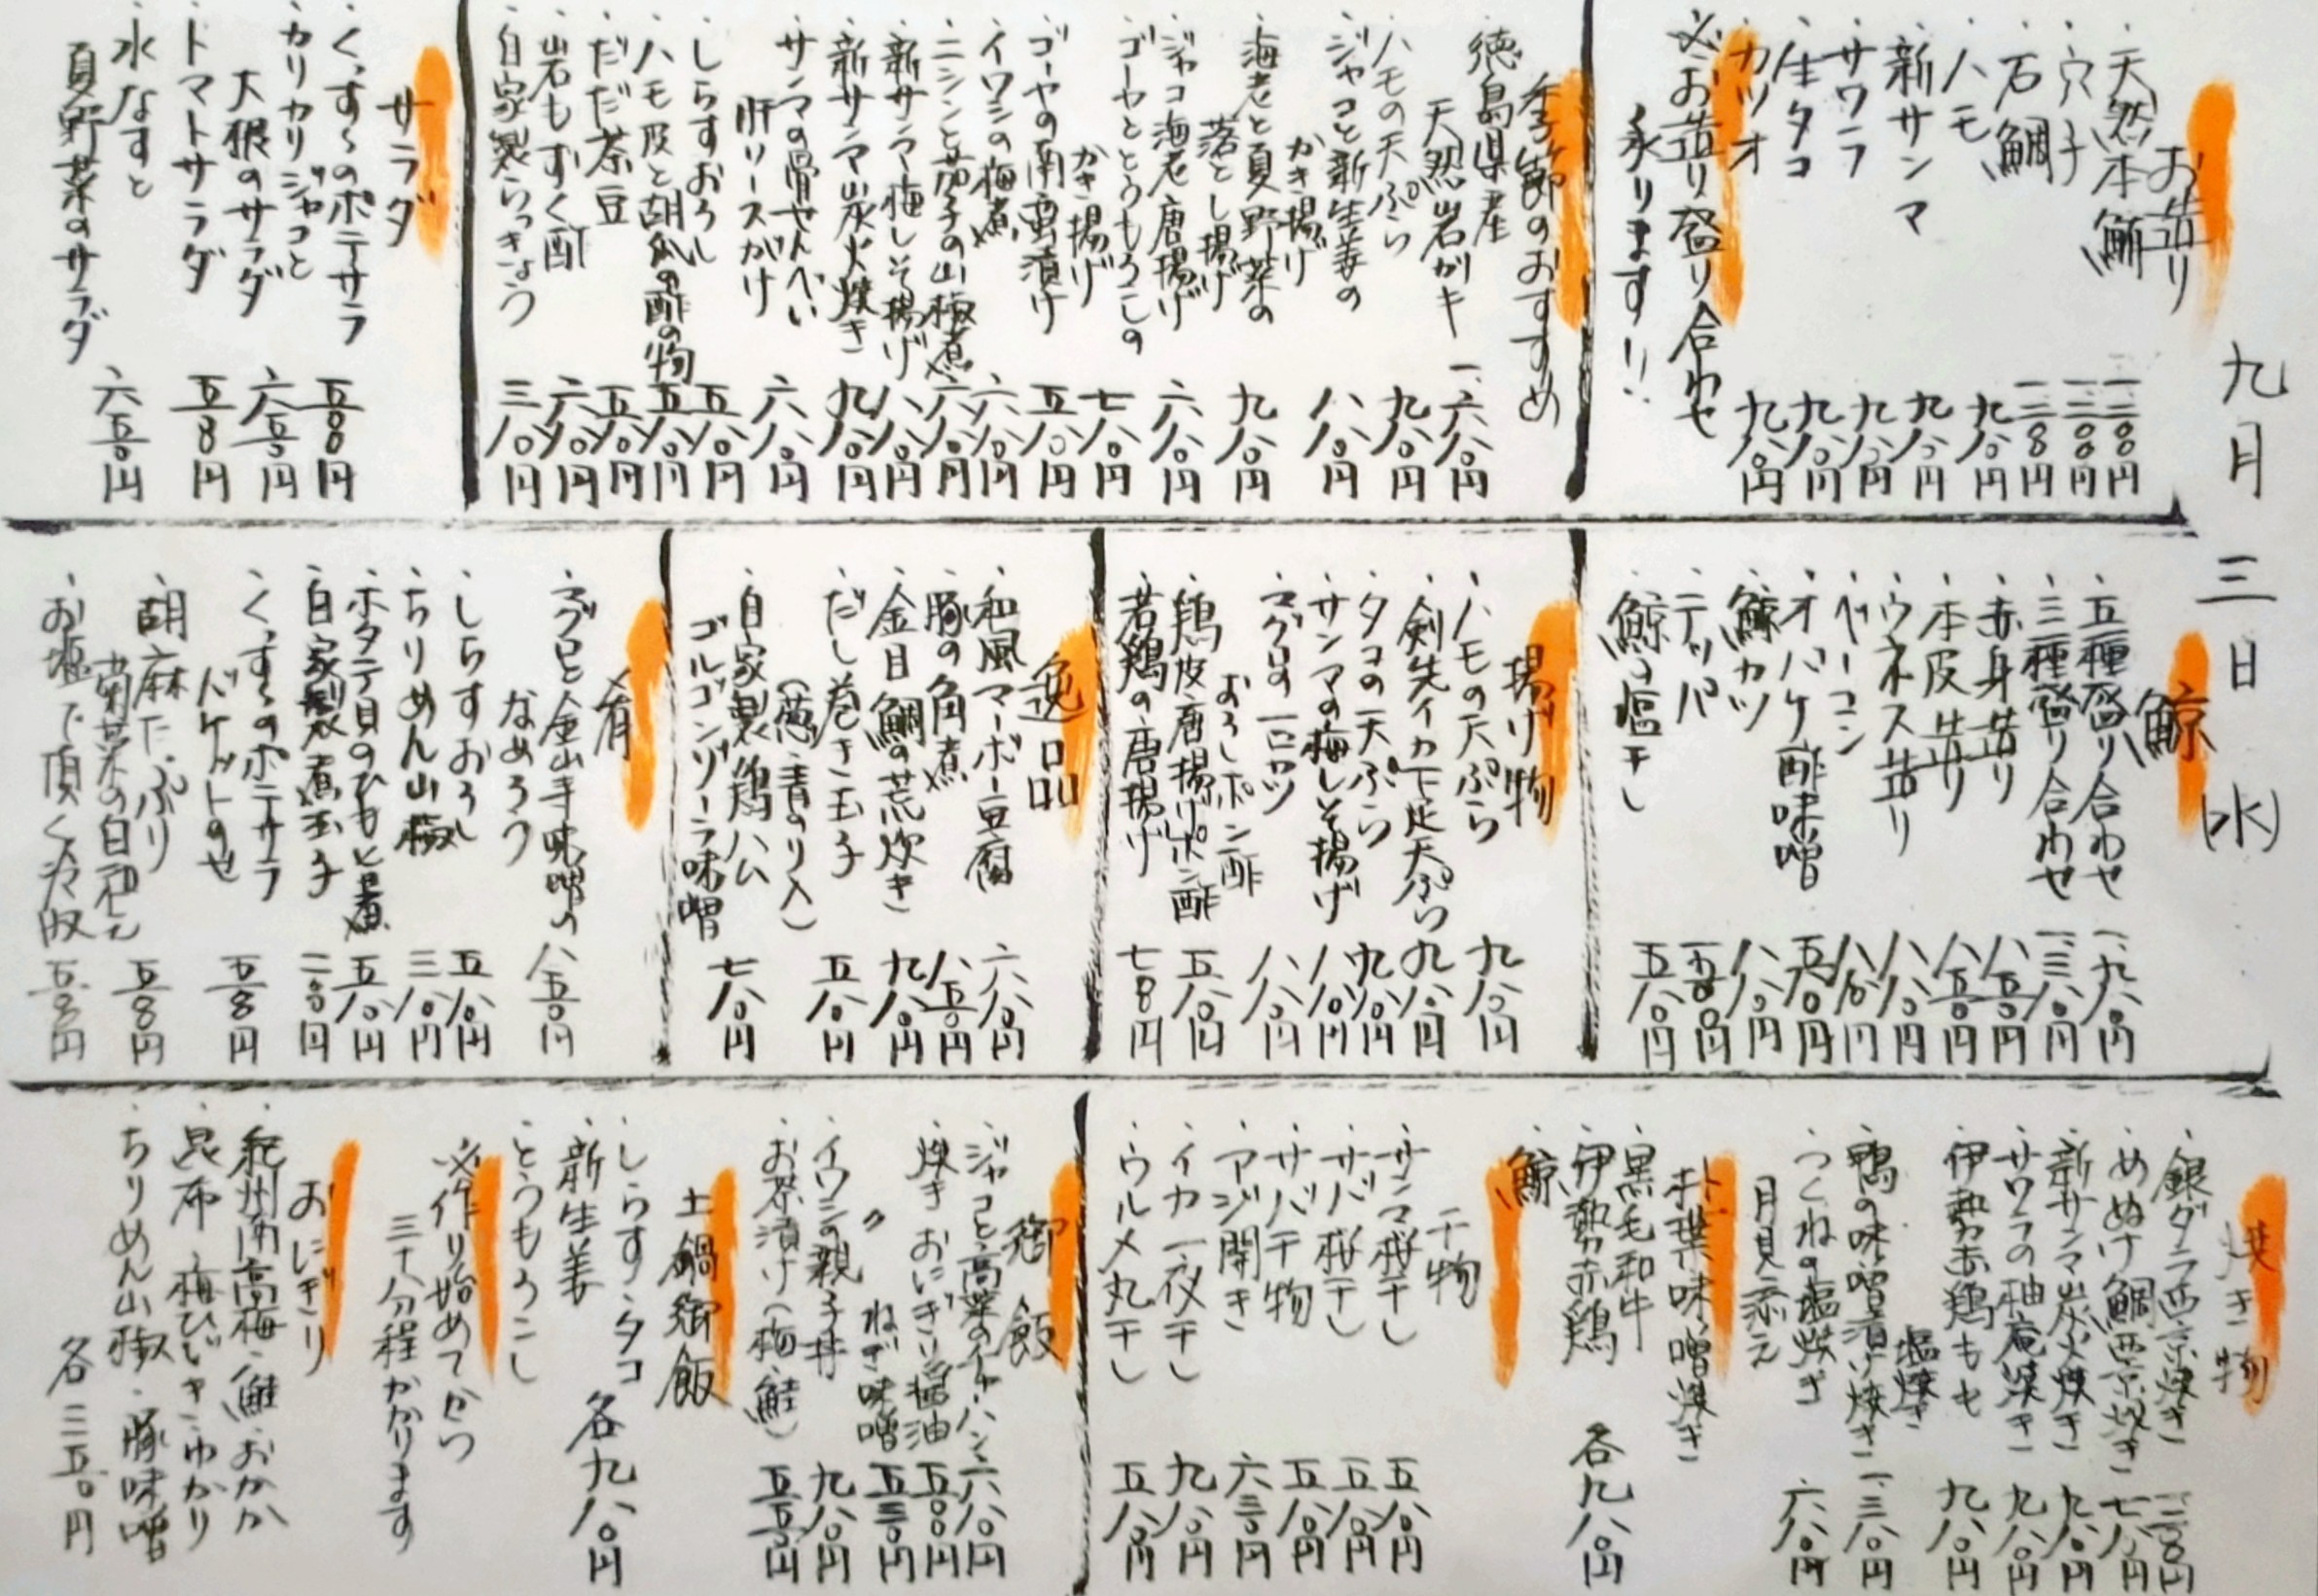 九月三日(水)
お造り
・天然本鮪 一二〇〇円
・穴子 一二〇〇円
・石鯛 一二〇〇円
・ハモ 九八〇円
・新サンマ 九八〇円
・サワラ 九八〇円
・生タコ 九八〇円
・カツオ 九八〇円
※お造り盛り合わせ
承ります!!
季節のおすすめ
・徳島県産
天然岩ガキ 一、六八〇円
・ハモの天ぷら 九八〇円
・ジャコと新生姜の
かき揚げ 八八〇円
・海老と夏野菜の
落とし揚げ 九八〇円
・ジャコ海老唐揚げ 六八〇円
・ゴーヤととうもろこしの
かき揚げ 七八〇円
・ゴーヤの南蛮漬け 五八〇円
・イワシの梅煮 六八〇円
・ニシンと茄子の山椒煮 六八〇円
・新サンマ梅しそ揚げ 八八〇円
・新サンマ炭火焼き 九八〇円
・サンマの骨せんべい
肝ソースがけ 六八〇円
・しらすおろし 五八〇円
・ハモ皮と胡瓜の酢の物 五八〇円
・だだ茶豆 五八〇円
・岩もずく酢 六八〇円
・自家製らっきょう 三八〇円
サラダ
・くぅ〜のポテサラ 五〇〇円
・カリカリジャコと
大根のサラダ 六五〇円
・トマトサラダ 五〇〇円
・水なすと
夏野菜のサラダ 六五〇円
鯨
・五種盛り合わせ 一、九八〇円
・三種盛り合わせ 一、三八〇円
・赤身造り 八五〇円
・本皮造り 八五〇円
・ウネス造り 八八〇円
・ベーコン 八八〇円
・オバケ酢味噌 五八〇円
・鯨カツ 八八〇円
・テッパ
・鯨の塩干し 五八〇円
揚げ物
・ハモの天ぷら 九八〇円
・剣先イカ下足天ぷら 九八〇円
・タコの天ぷら 九八〇円
・サンマの梅しそ揚げ 八八〇円
・マグロの一口カツ
おろしポン酢 八八〇円
・鶏皮唐揚げポン酢 五八〇円
・若鶏の唐揚げ 七〇〇円
逸品
・和風マーボー豆腐 六八〇円
・豚の角煮 八五〇円
・金目鯛の荒炊き 九八〇円
・だし巻き玉子
(葱・青のり入) 五八〇円
・自家製鶏ハム
ゴルゴンゾーラ味噌 七八〇円
肴
・マグロと金山寺味噌の
なめろう 八五〇円
・しらすおろし 五八〇円
・ちりめん山椒 三八〇円
・ホタテ貝のひもと煮 五八〇円
・自家製煮玉子 二〇〇円
・くぅ〜のポテサラ
バケットのせ 五〇〇円
・胡麻たっぷり
菊菜の白和え 五〇〇円
・お塩で頂く冷奴 五〇〇円
焼き物
・銀ダラ西京焼き 一二〇〇円
・めぬけ鯛西京焼き 一、七八〇円
・新サンマ炭火焼き 九八〇円
・サワラの柚庵焼き 九八〇円
・伊勢赤鶏もも
塩焼き 九八〇円
・鴨の味噌漬け焼き 一、三八〇円
・つくねの塩焼き
月見添え 六八〇円
朴葉味噌焼き
・黒毛和牛
・伊勢赤鶏
・鯨
各九八〇円
干物
・サンマ桜干し 五八〇円
・サバ桜干し 五八〇円
・サバ干物 五八〇円
・アジ開き 六三〇円
・イカ一夜干し 九八〇円
・ウルメ丸干し 五八〇円
御飯
・ジャコと高菜のチャーハン 六八〇円
・焼きおにぎり醤油 五〇〇円
・〃 ねぎ味噌 五三〇円
・イワシの親子丼 九八〇円
・お茶漬け(梅・鮭) 五五〇円
土鍋御飯
・しらす・タコ
・新生姜
・とうもろこし
各九八〇円
※作り始めてから
三十分程かかります
おにぎり
・紀州南高梅・鮭・おかか
・昆布・梅ひじき・ゆかり
・ちりめん山椒・豚味噌
各三五〇円